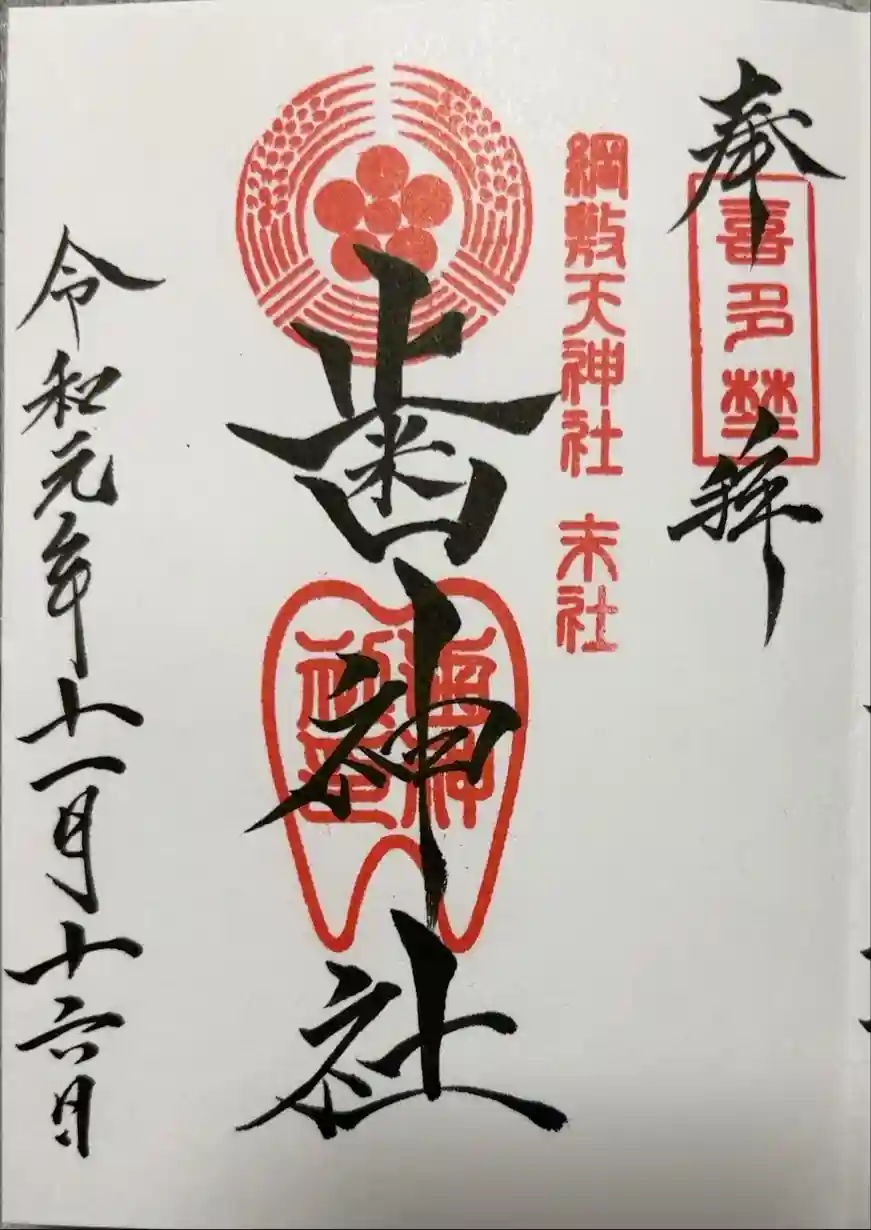 奉拝
喜多埜
綱敷天神社 末社
歯神社
歯神
社印
令和元年十一月十六日